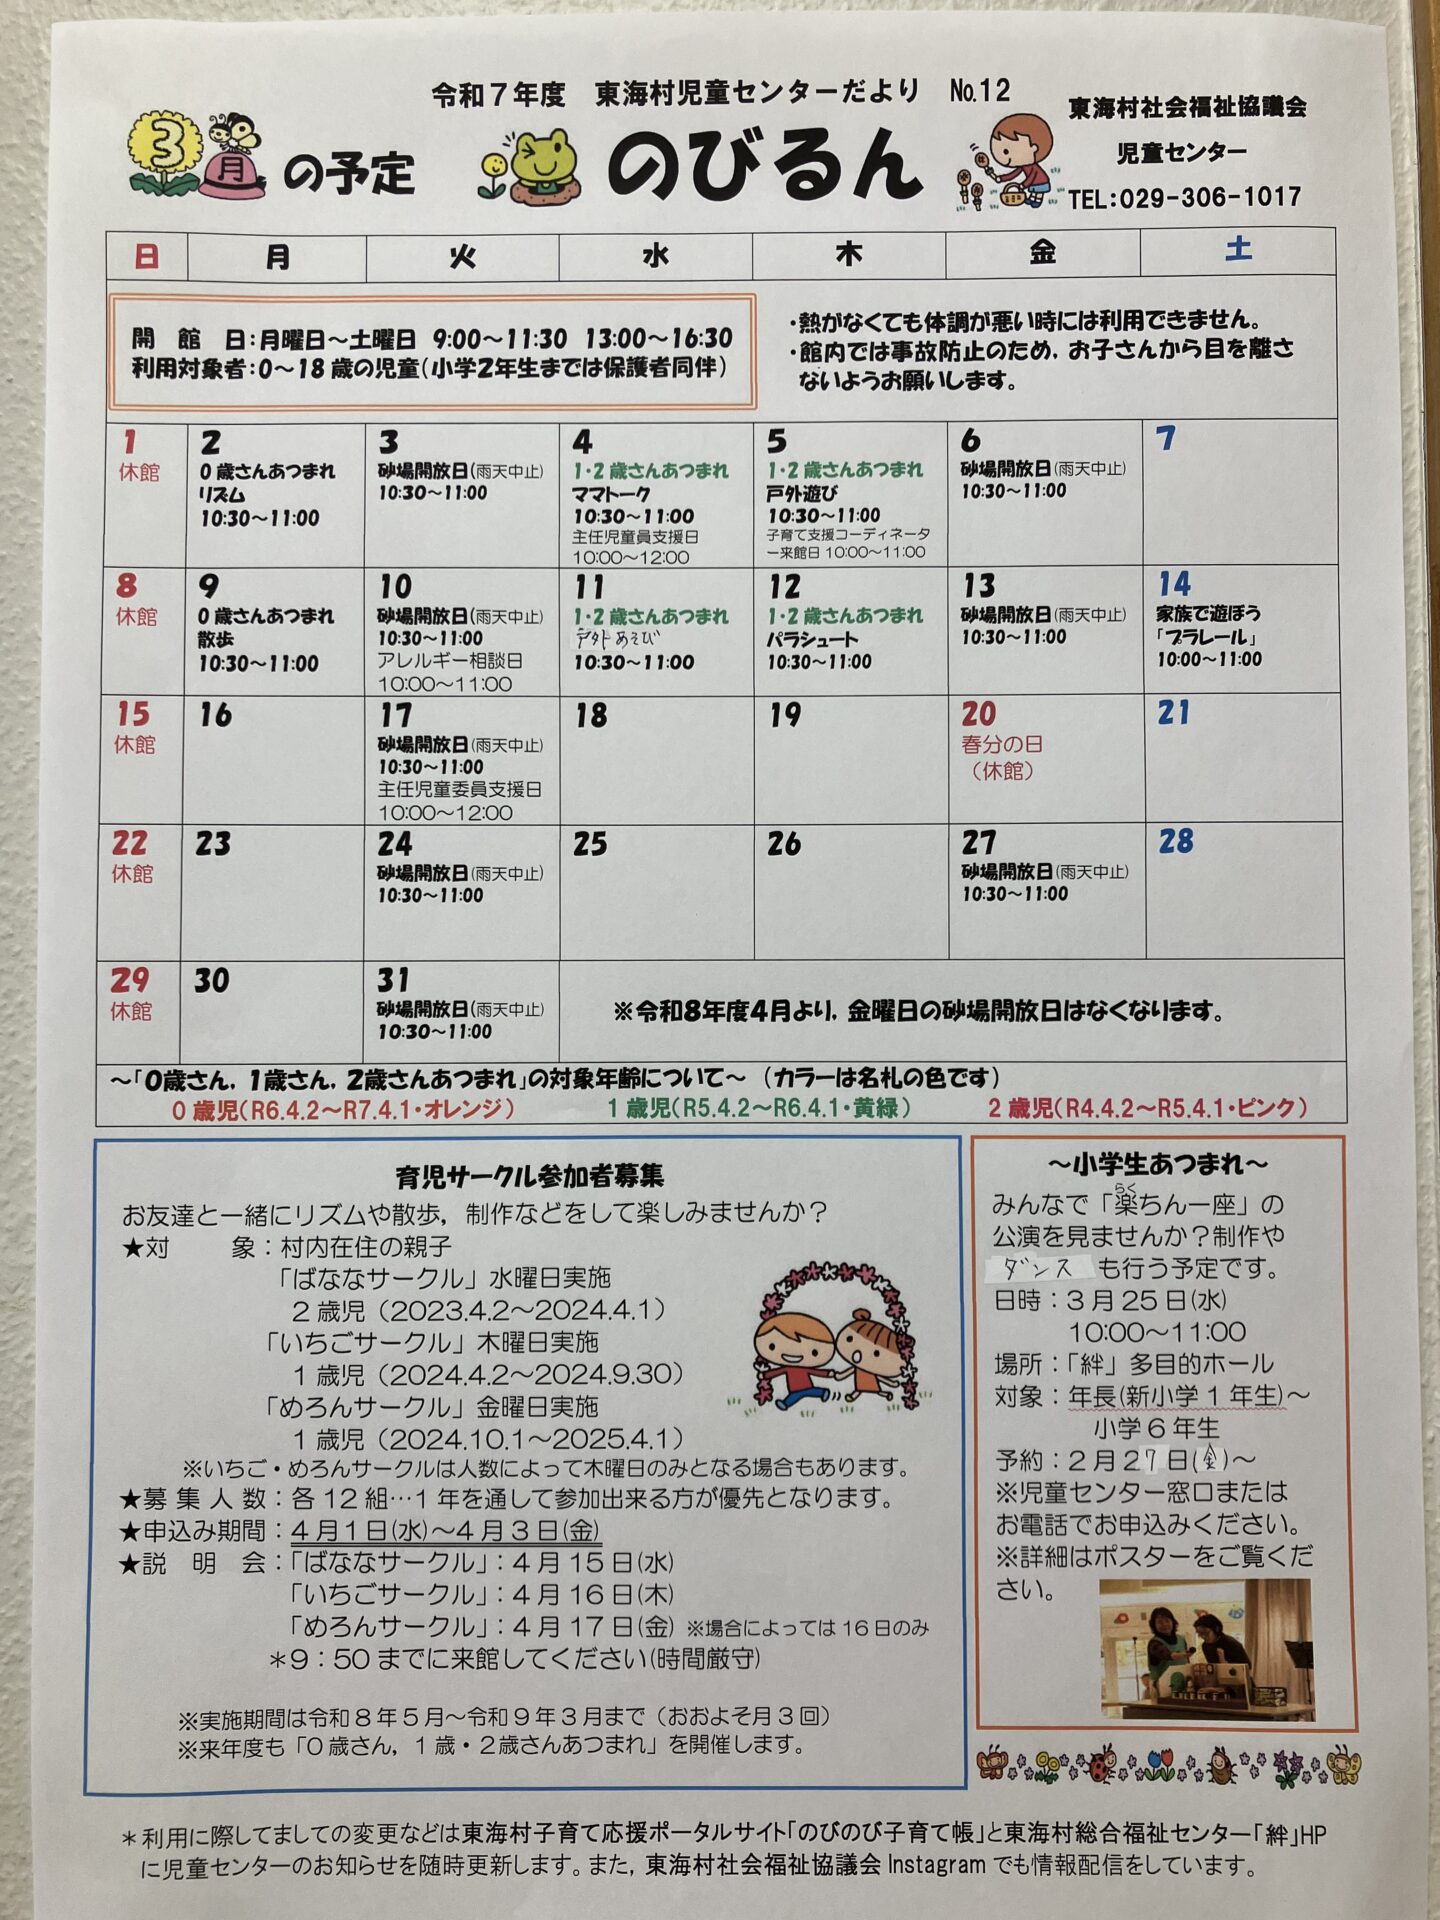 令和7年度　東海村児童センターだより　No.12
3月の予定
のびるん
東海村社会福祉協議会
児童センター
TEL:029-306-1017
日 月 火 水 木 金 土
開　館　日：月曜日～土曜日　9:00～11:30　13:00～16:30
利用対象者：0～18歳の児童（小学2年生までは保護者同伴）
・熱がなくても体調が悪い時には利用できません。
・館内では事故防止のため，お子さんから目を離さ
ないようお願いします。
1
休館
2
0歳さんあつまれ
リズム
10:30～11:00
3
砂場開放日（雨天中止）
10:30～11:00
4
1・2歳さんあつまれ
ママトーク
10:30～11:00
主任児童員支援日
10:00～12:00
5
1・2歳さんあつまれ
戸外遊び
10:30～11:00
子育て支援コーディネータ
ー来館日 10:00～11:00
6
砂場開放日（雨天中止）
10:30～11:00
7
8
休館
9
0歳さんあつまれ
散歩
10:30～11:00
10
砂場開放日（雨天中止）
10:30～11:00
アレルギー相談日
10:00～11:00
11
1・2歳さんあつまれ
あそび
10:30～11:00
12
1・2歳さんあつまれ
パラシュート
10:30～11:00
13
砂場開放日（雨天中止）
10:30～11:00
14
家族で遊ぼう
「プラレール」
10:00～11:00
15
休館
16
17
砂場開放日（雨天中止）
10:30～11:00
主任児童委員支援日
10:00～12:00
18
19
20
春分の日
（休館）
21
22
休館
23
24
砂場開放日（雨天中止）
10:30～11:00
25
26
27
砂場開放日（雨天中止）
10:30～11:00
28
29
休館
30
31
砂場開放日（雨天中止）
10:30～11:00
※令和8年度4月より，金曜日の砂場開放日はなくなります。
～「0歳さん，1歳さん，2歳さんあつまれ」の対象年齢について～（カラーは名札の色です）
0歳児（R6.4.2～R7.4.1・オレンジ）　1歳児（R5.4.2～R6.4.1・黄緑）　2歳児（R4.4.2～R5.4.1・ピンク）
育児サークル参加者募集
お友達と一緒にリズムや散歩，制作などをして楽しみませんか？
★対　　象：村内在住の親子
「ばななサークル」水曜日実施
2歳児（2023.4.2～2024.4.1）
「いちごサークル」木曜日実施
1歳児（2024.4.2～2024.9.30）
「めろんサークル」金曜日実施
1歳児（2024.10.1～2025.4.1）
※いちご・めろんサークルは人数によって木曜日のみとなる場合もあります。
★募集人数：各12組…1年を通して参加出来る方が優先となります。
★申込み期間：4月1日(水)～4月3日(金)
★説　明　会：「ばななサークル」：4月15日(水)
「いちごサークル」：4月16日(木)
「めろんサークル」：4月17日(金) ※場合によっては16日のみ
＊9：50までに来館してください(時間厳守)
※実施期間は令和8年5月～令和9年3月まで（おおよそ月3回）
※来年度も「0歳さん，1歳・2歳さんあつまれ」を開催します。
～小学生あつまれ～
らく
みんなで「楽ちん一座」の
公演を見ませんか？制作や
ダンスも行う予定です。
日時：3月25日(水)
10:00～11:00
場所：「絆」多目的ホール
対象：年長(新小学1年生)～
小学6年生
予約：2月27日(金)～
※児童センター窓口または
お電話でお申込みください。
※詳細はポスターをご覧くだ
さい。
＊利用に際してましての変更などは東海村子育て応援ポータルサイト「のびのび子育て帳」と東海村総合福祉センター「絆」HP
に児童センターのお知らせを随時更新します。また，東海村社会福祉協議会 Instagram でも情報配信をしています。